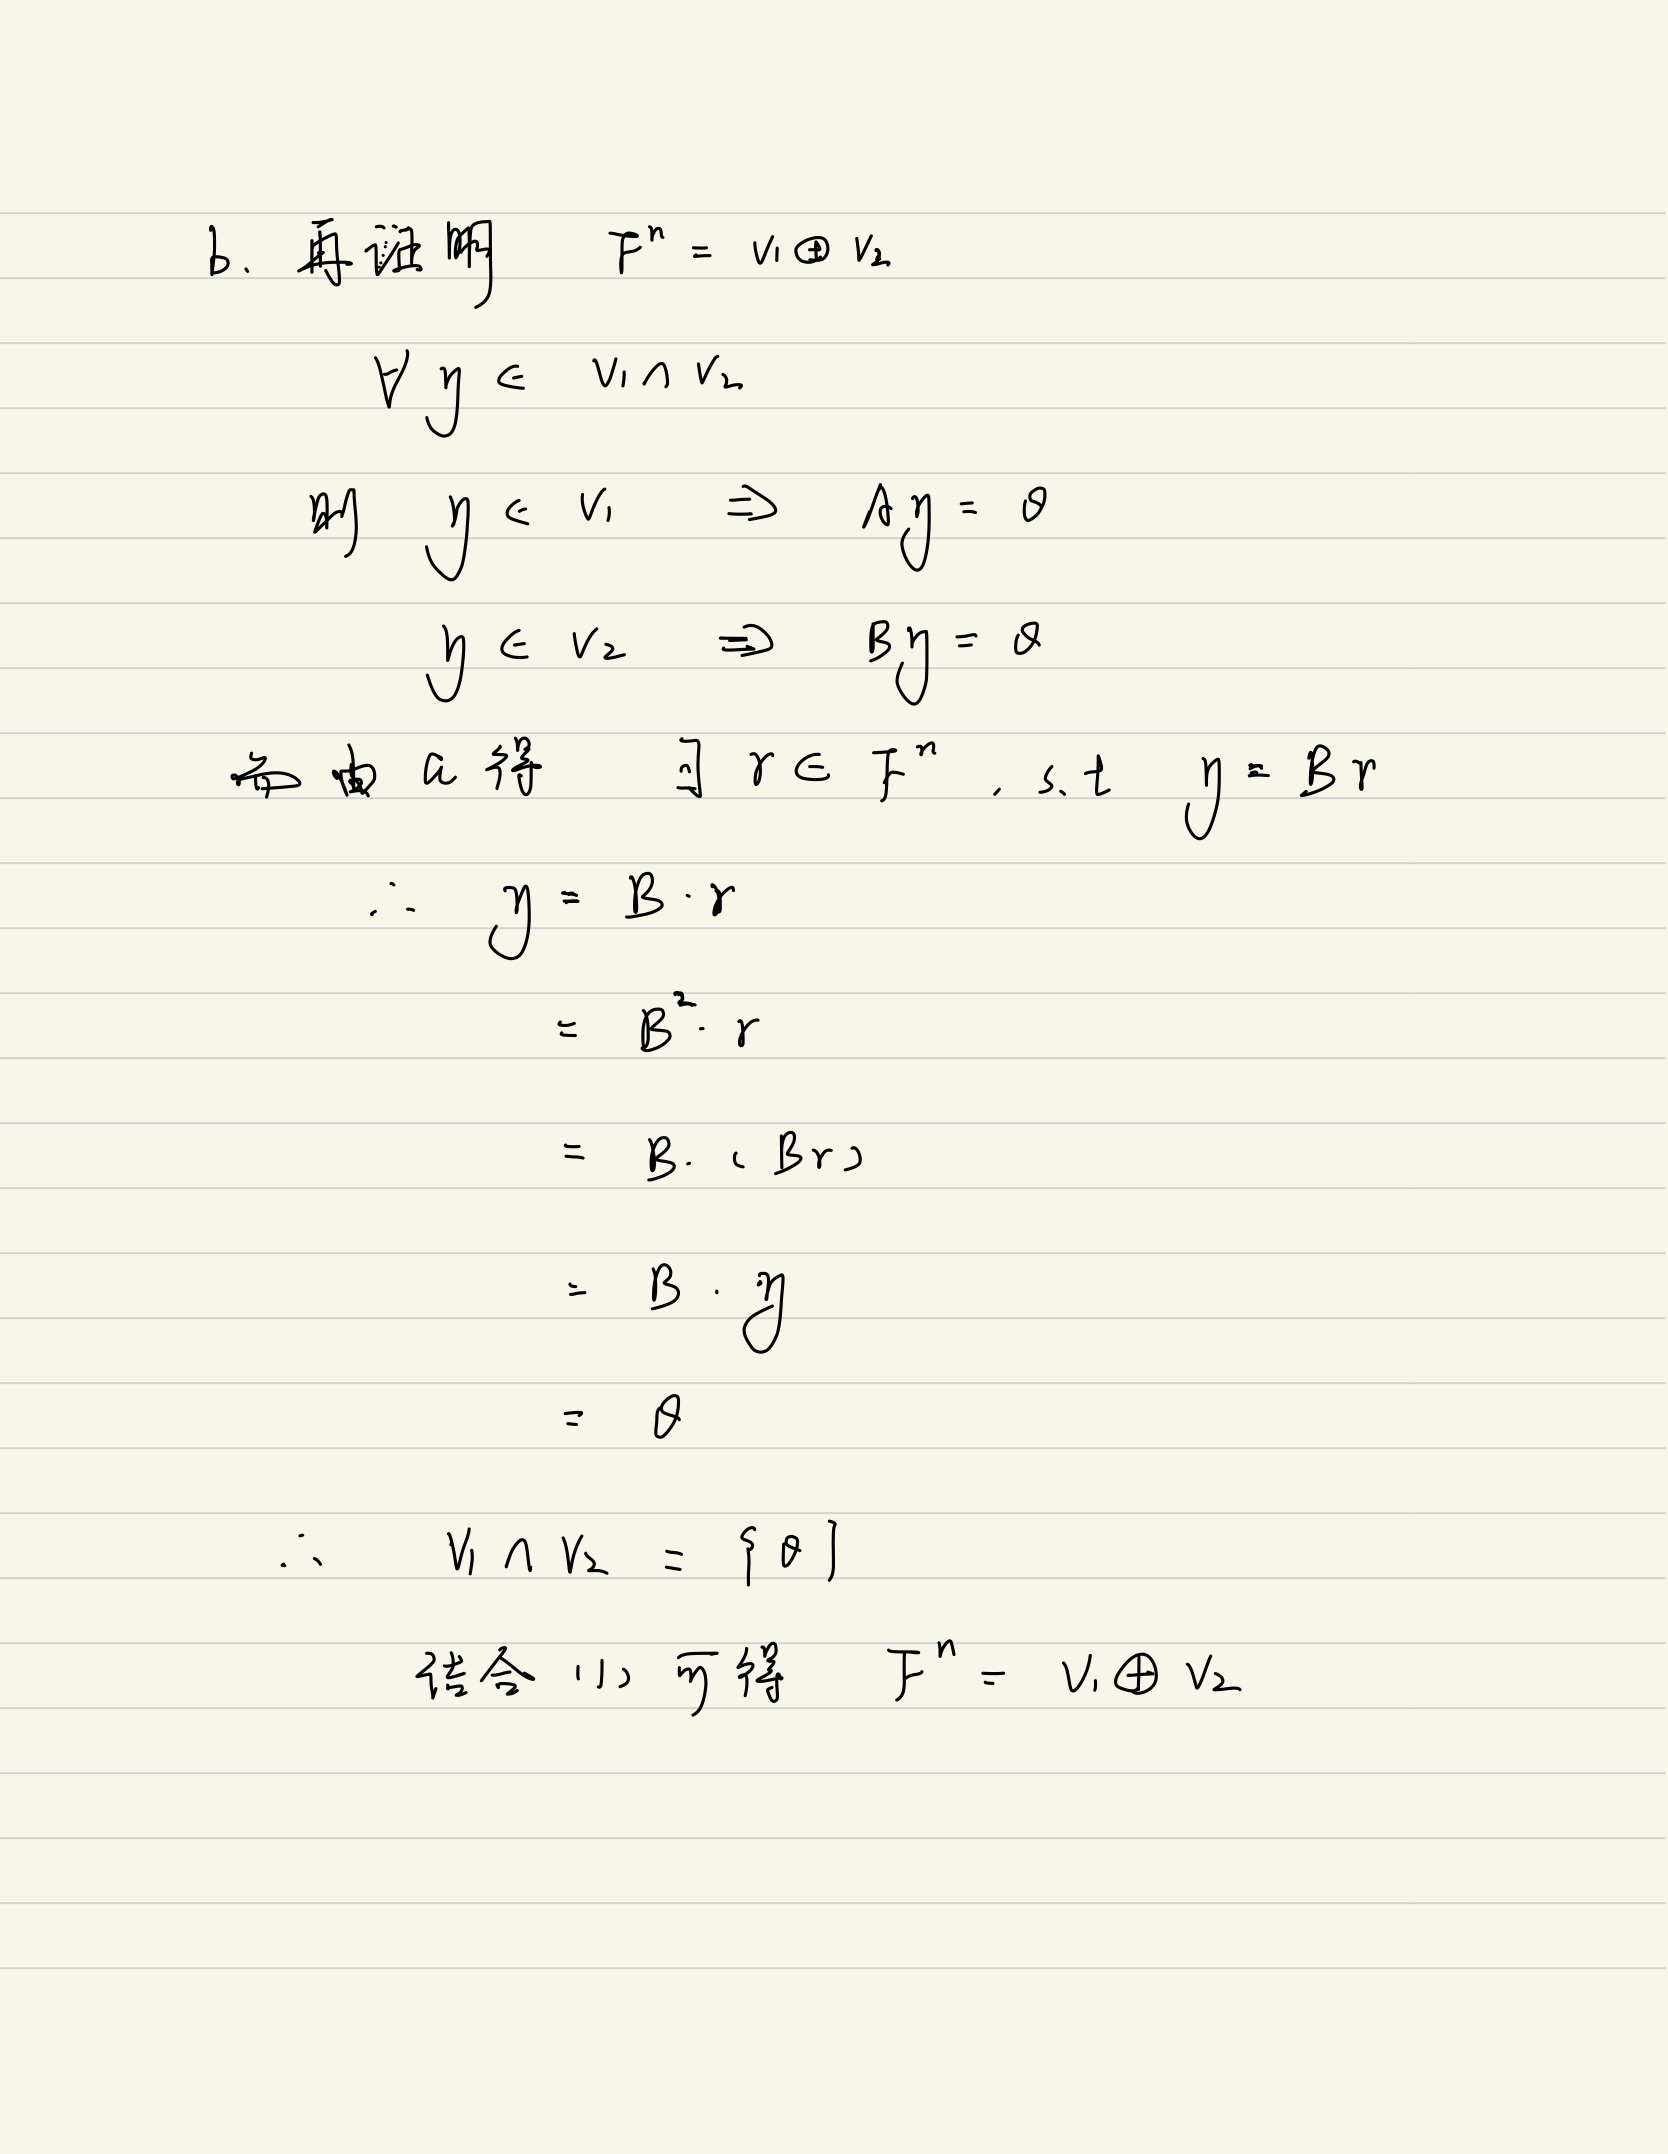 b. 再证明 Fⁿ = V₁ ⊕ V₂
∀ η ∈ V₁ ∩ V₂
则 η ∈ V₁ ⇒ Aη = θ
η ∈ V₂ ⇒ Bη = θ
由 a 得 ∃ r ∈ Fⁿ, s.t η = Br
∴ η = B · r
= B² · r
= B · (Br)
= B · η
= θ
∴ V₁ ∩ V₂ = {θ}
结合 (1) 可得 Fⁿ = V₁ ⊕ V₂